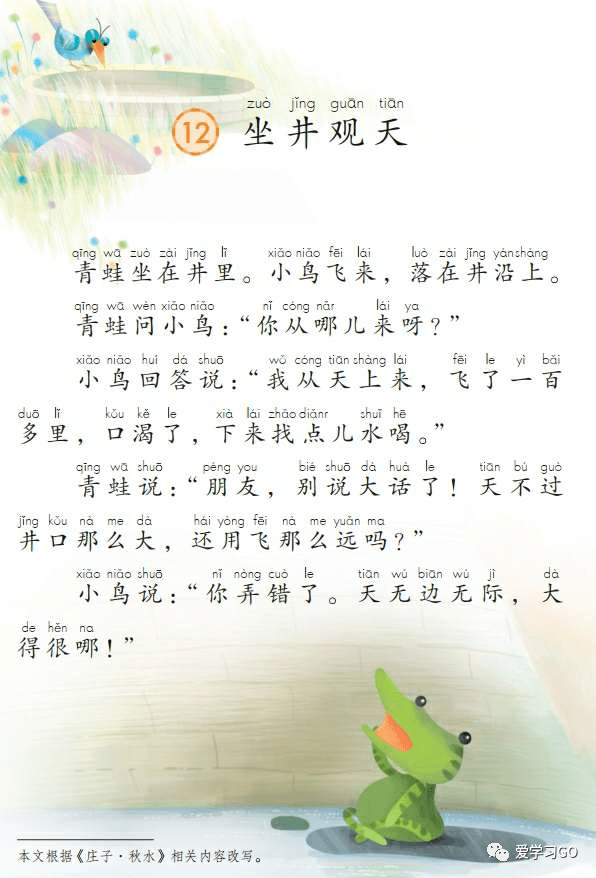 zuò jǐng guān tiān
12 坐井观天
qīng wā zuò zài jǐng lǐ xiǎo niǎo fēi lái luò zài jǐng yán shàng
青蛙坐在井里。小鸟飞来，落在井沿上。
qīng wā wèn xiǎo niǎo nǐ cóng nǎr lái ya
青蛙问小鸟：“你从哪儿来呀？”
xiǎo niǎo huí dá shuō wǒ cóng tiān shàng lái fēi le yì bǎi
小鸟回答说：“我从天上来，飞了一百
duō lǐ kǒu kě le xià lái zhǎo diǎnr shuǐ hē
多里，口渴了，下来找点儿水喝。”
qīng wā shuō péng you bié shuō dà huà le tiān bú guò
青蛙说：“朋友，别说大话了！天不过
jǐng kǒu nà me dà hái yòng fēi nà me yuǎn ma
井口那么大，还用飞那么远吗？”
xiǎo niǎo shuō nǐ nòng cuò le tiān wú biān wú jì dà
小鸟说：“你弄错了。天无边无际，大
de hěn na
得很哪！”
本文根据《庄子·秋水》相关内容改写。
爱学习GO